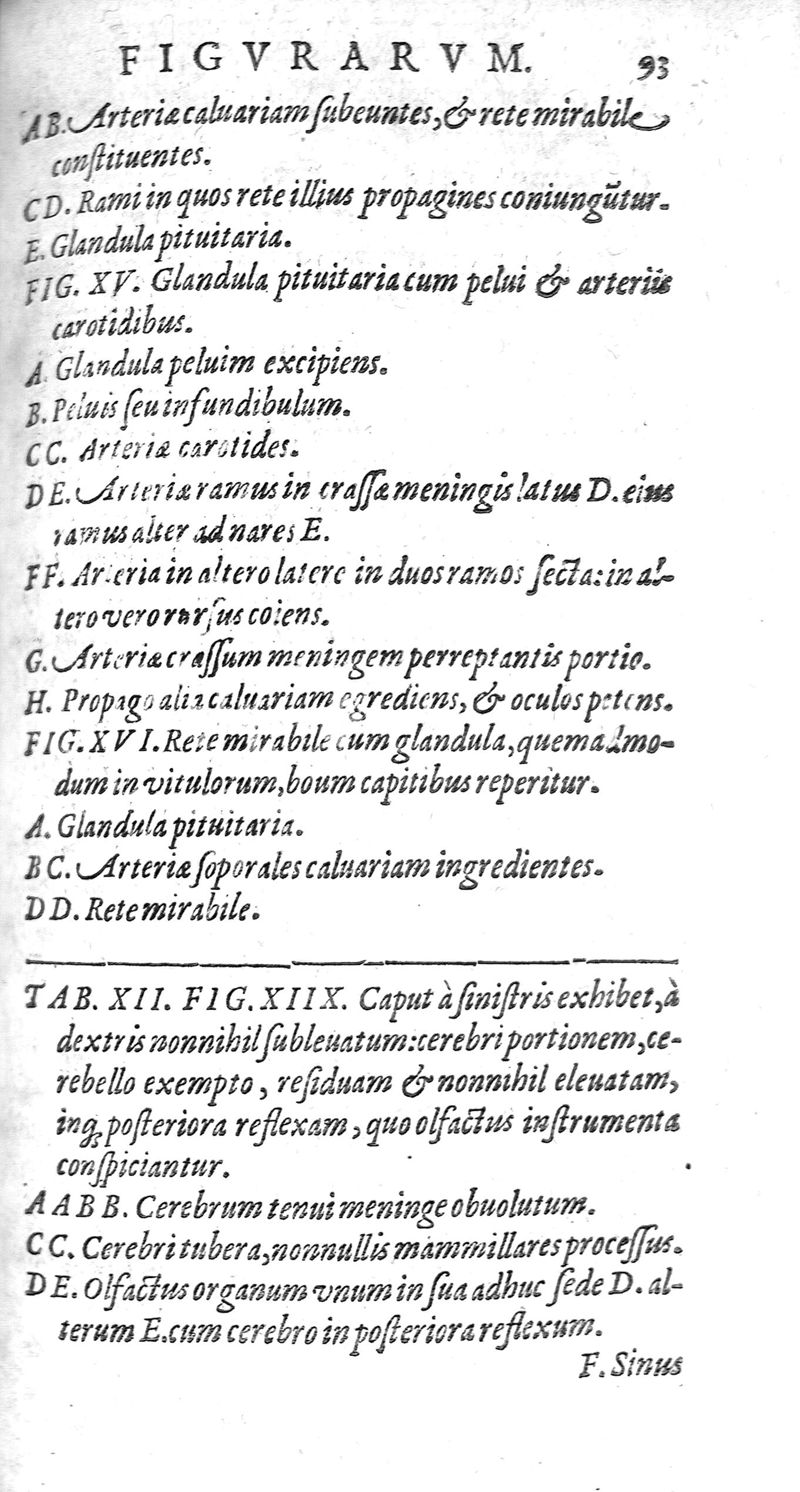 FIGVRARVM. 93
AB. Arteriæ caluariam ſubeuntes, & rete mirabile
conſtituentes.
CD. Rami in quos rete illius propagines coniungũtur.
E. Glandula pituitaria.
FIG. XV. Glandula pituitaria cum pelui & arteriis
carotidibus.
A. Glandula peluim excipiens.
B. Peluis ſeu infundibulum.
CC. Arteriæ carotides.
DE. Arteriæ ramus in craſſæ meningis latus D. eius
ramus alter ad nares E.
FF. Arteria in altero latere in duos ramos ſecta: in al-
tero vero rurſus coiens.
G. Arteriæ craſſum meningem perreptantis portio.
H. Propago alia caluariam egrediens, & oculos petens.
FIG. XVI. Rete mirabile cum glandula, quemadmo-
dum in vitulorum, boum capitibus reperitur.
A. Glandula pituitaria.
BC. Arteriæ ſoporales caluariam ingredientes.
DD. Rete mirabile.
TAB. XII. FIG. XIIX. Caput à ſiniſtris exhibet, à
dextris nonnihil ſubleuatum: cerebri portionem, ce-
rebello exempto, reſiduam & nonnihil eleuatam,
inq; poſteriora reflexam, quo olfactus inſtrumenta
conſpiciantur.
AABB. Cerebrum tenui meninge obuolutum.
CC. Cerebri tubera, nonnullis mammillares proceſſus.
DE. Olfactus organum vnum in ſua adhuc ſede D. al-
terum E. cum cerebro in poſteriora reflexum.
F. Sinus